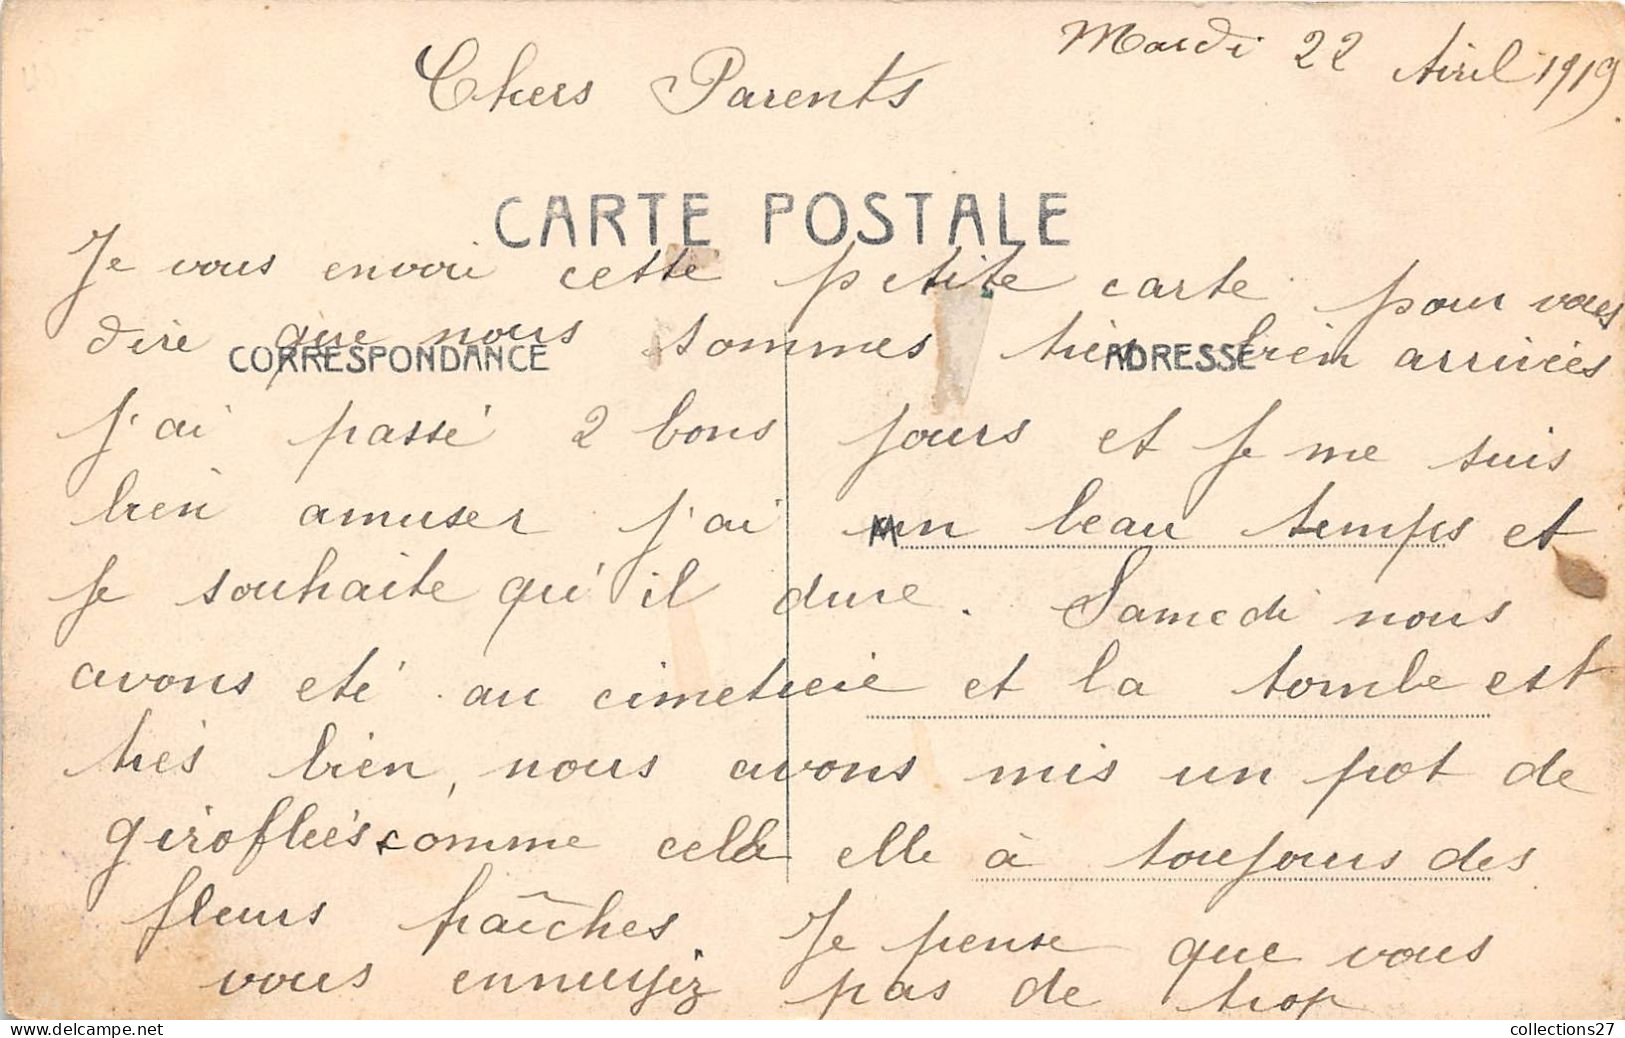 Mardi 22 Avril 1919
Chers Parents
CARTE POSTALE
Je vous envoi cette petite carte pour vous
dire que nous sommes très bien arrivées
CORRESPONDANCE
ADRESSE
j'ai passé 2 bons jours et je me suis
bien amuser j'ai un beau temps et
je souhaite qu'il dure. Samedi nous
avons eté au cimetière et la tombe est
très bien, nous avons mis un pot de
giroflées comme cela elle à toujours des
fleurs fraîches. Je pense que vous
vous ennuyiz pas de trop
collections27